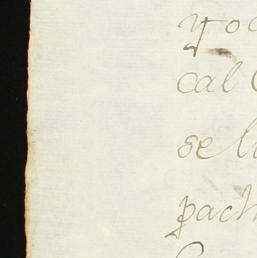 y o
cal
se li
pach